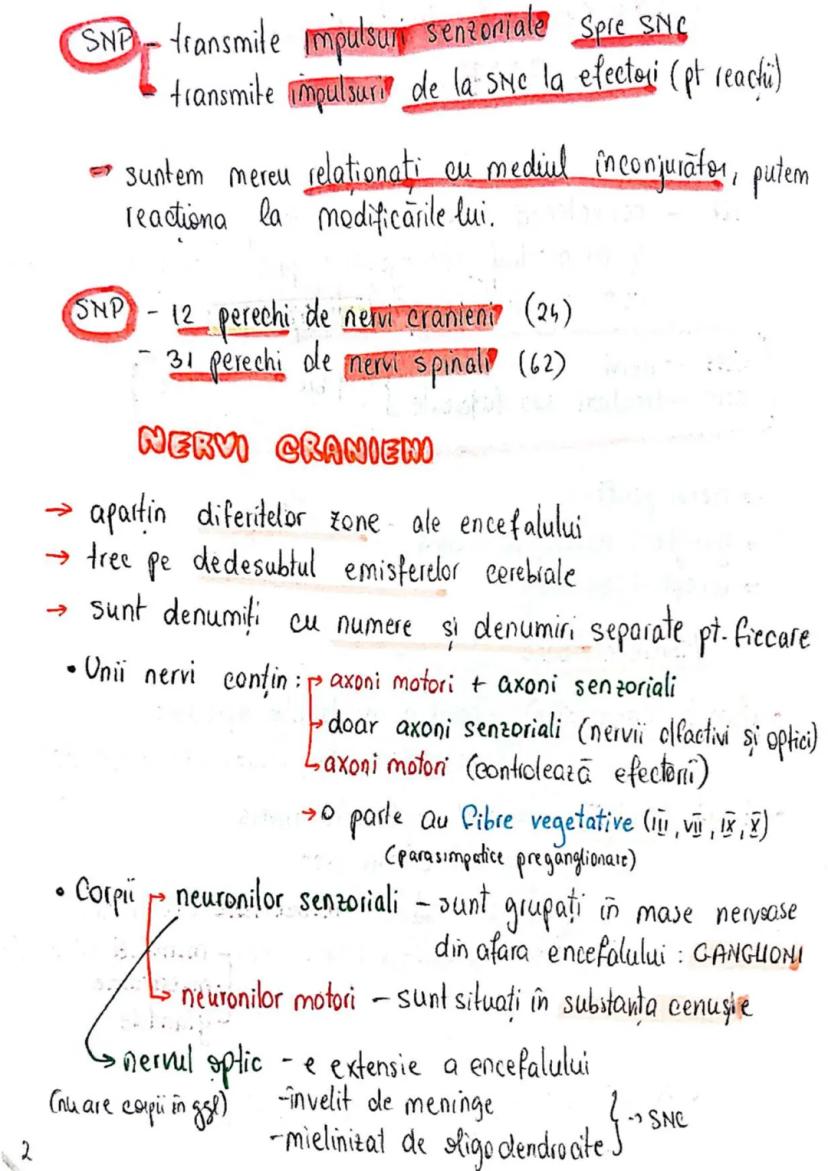 SNP - transmite impulsuri senzoriale spre SNC
transmite impulsuri de la SNC la efectori (pt reacții)
suntem mereu relaționați cu mediul înconjurător, putem
reacționa la modificările lui.
SNP - 12 perechi de nervi cranieni (24)
- 31 perechi de nervi spinali (62)
NERVI CRANIENI
→ aparțin diferitelor zone ale encefalului
→ trec pe dedesubtul emisferelor cerebrale
→ sunt denumiți cu numere și denumiri separate pt. fiecare
• Unii nervi conțin: → axoni motori + axoni senzoriali
→ doar axoni senzoriali (nervii olfactivi și optici)
→ axoni motori (controlează efectorii)
→ O parte au fibre vegetative (III, VII, IX, X)
(parasimpatice preganglionare)
• Corpii → neuronilor senzoriali - sunt grupați în mase nervoase
din afara encefalului : GANGLIONI
→ neuronilor motori - sunt situați în substanța cenușie
→ nervul optic - e extensie a encefalului
(nu are corpii în ggl) - învelit de meninge
- mielinizat de oligodendrocite } → SNC
2